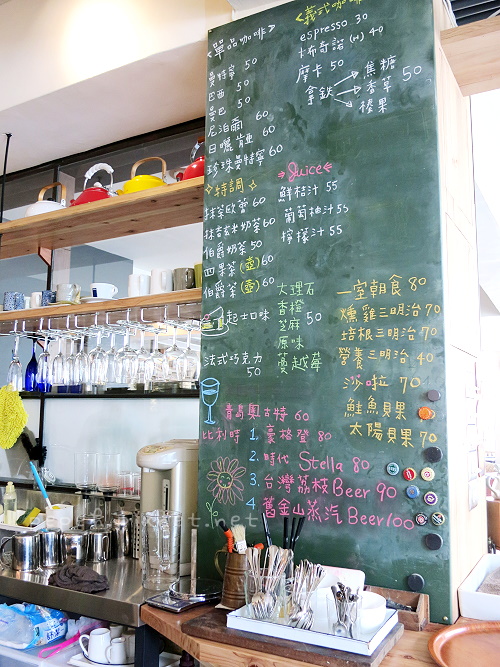 <單品咖啡>
曼特寧 50
巴西 50
曼巴 50
尼泊爾 60
日曬 60
珍珠曼特寧 60
特調
抹茶歐蕾 60
抹香玄米奶茶 60
伯爵奶茶 50
四果茶(壺) 60
伯爵茶(壺) 60
起士口味
大理石
香橙
芝麻
原味
蔓越莓
50
法式巧克力
50
<義式咖啡>
espresso 30
卡布奇諾 (H) 40
摩卡 50
拿鐵
焦糖
香草
榛果
50
Juice
鮮桔汁 55
葡萄柚汁 55
檸檬汁 55
一室朝食 80
燻雞三明治 70
培根三明治 70
營養三明治 40
沙啦 70
鮭魚貝果
太陽貝果 70
青島奧古特 60
比利時 1. 豪格登 80
2. 時代 Stella 80
3. 台灣荔枝 Beer 90
4 舊金山蒸汽 Beer 100